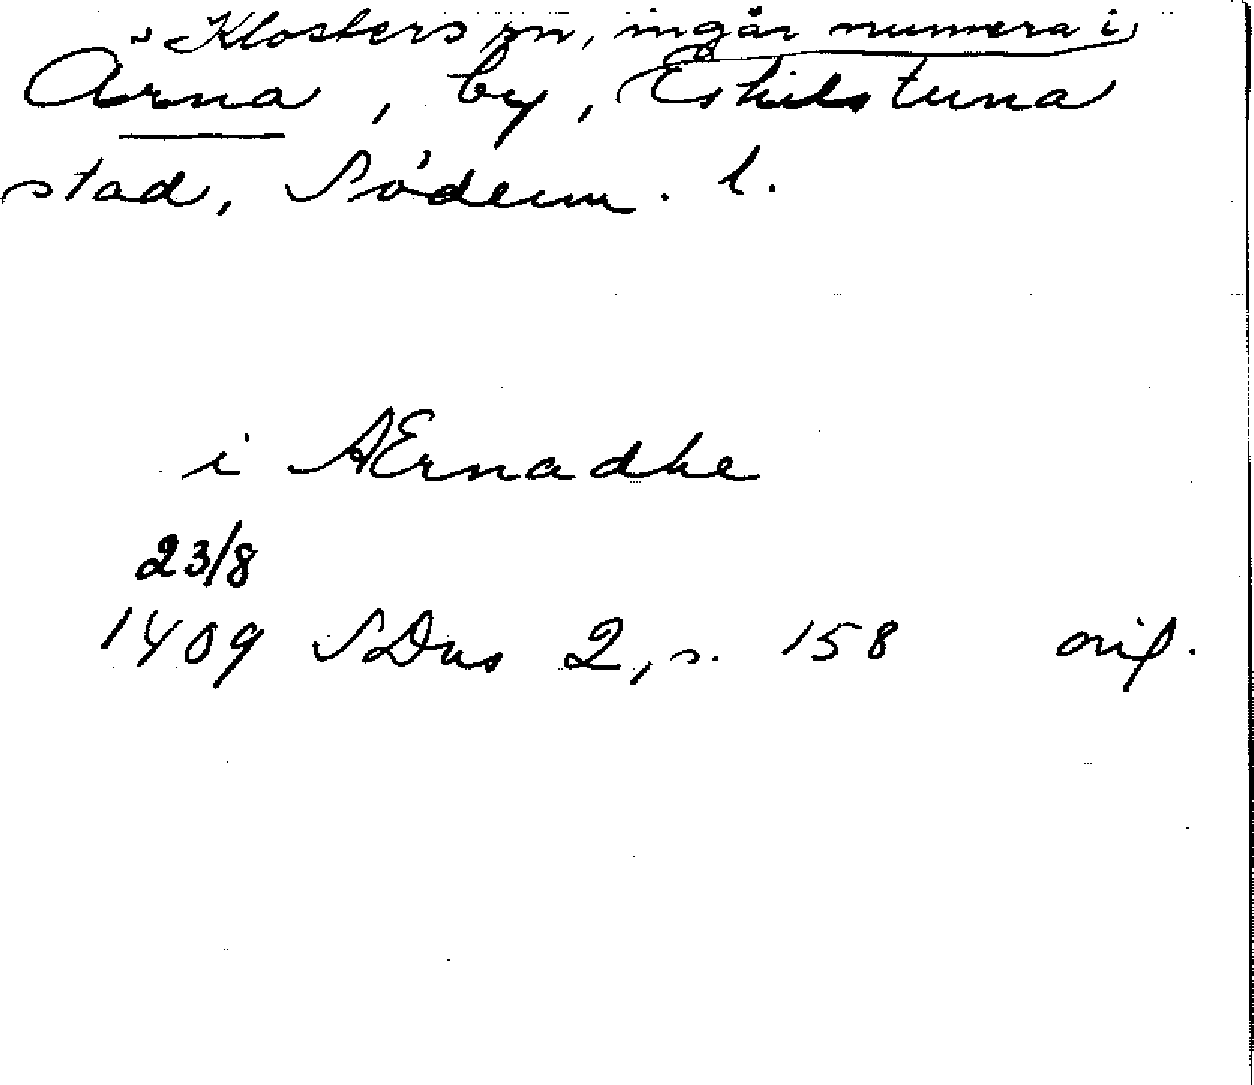 Klosters sn, ingår numera i
Arna, by, Eskilstuna
stad, Söderm. l.
i AErnadhe
23/8
1409 SDns 2, s. 158 orig.